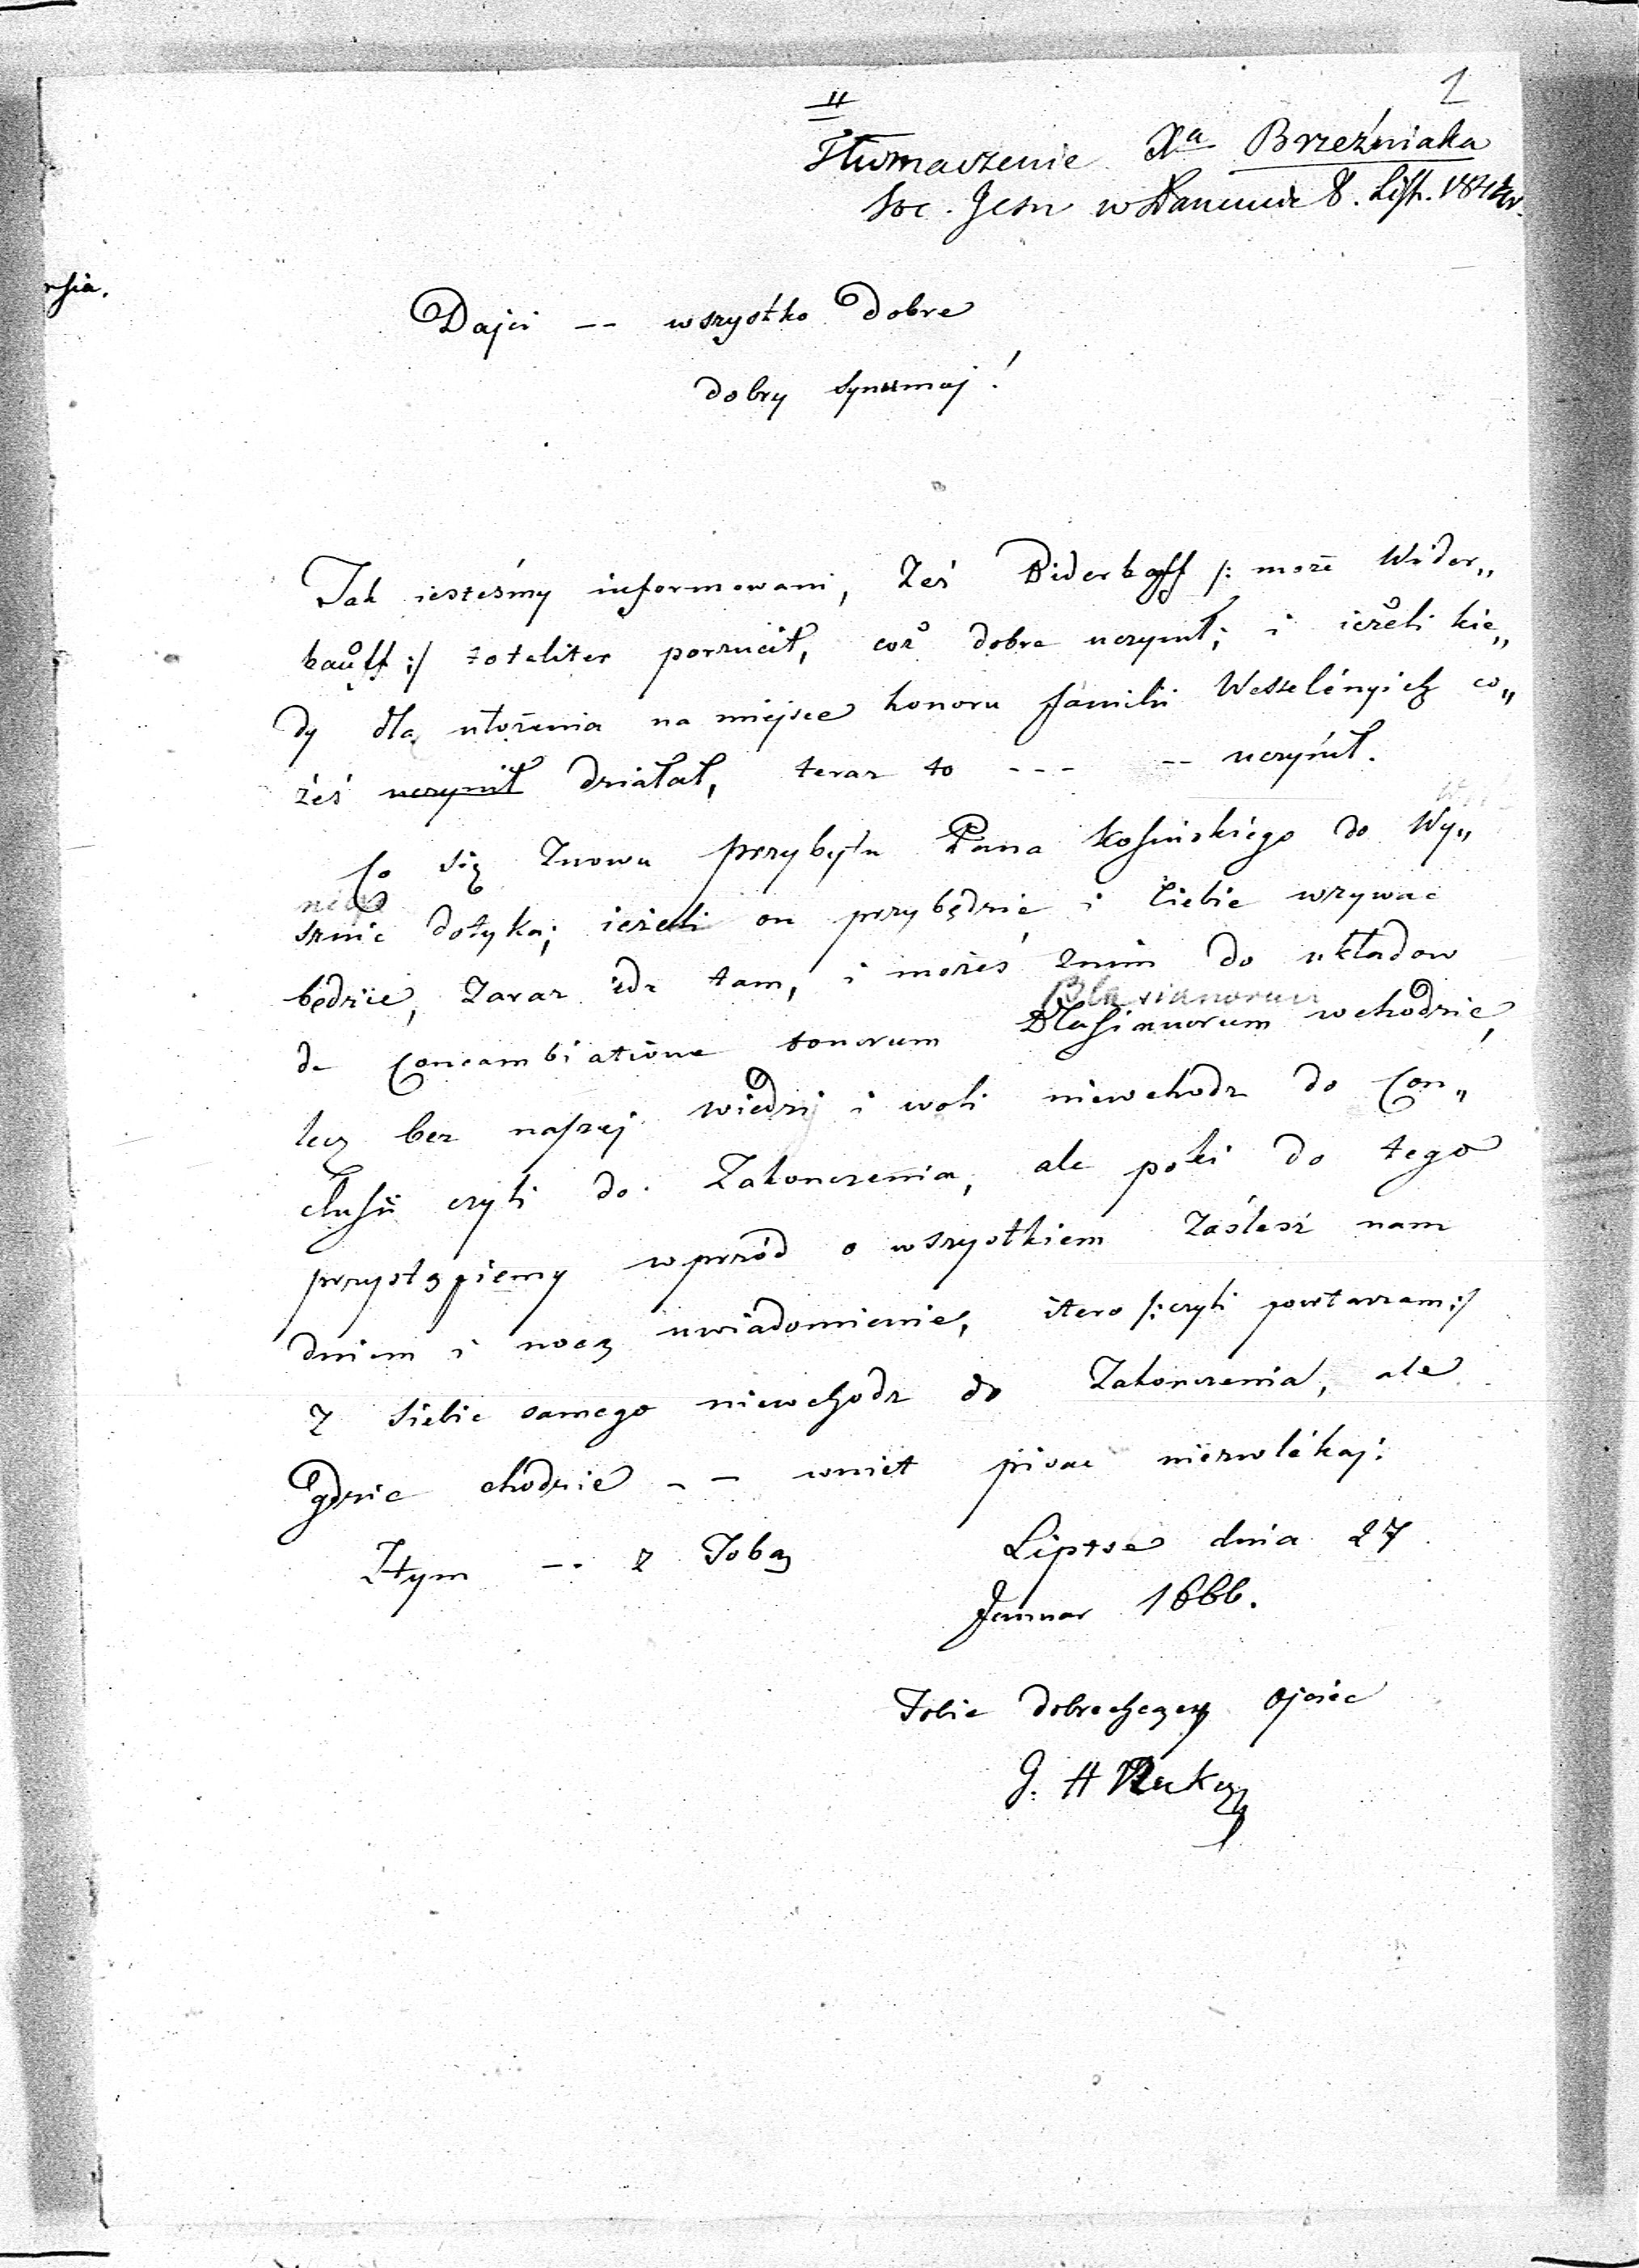 1
II
Tłumaczenie Xa Brzeźniaka
Soc. Jesu w 8. List. 184
Dajci -- wszystko dobre
dobry synumaj!
Jak iesteśmy informowani, żeś Biderkaff /: może Wider„
kauff :/ totaliter porzucił, coż dobre uczynił; i ieżeli kie„
dy dla ułożenia na miejsce honoru familii Wesselényich co„
żeś uczynił działał, teraz to --- -- uczynił.
Co się znowu przybyłu Pana Kosińskiego do Wy„
sznie dotyka; ieżeli on przybędzie i Ciebie wzywac
będzie, zaraz idz tam, i możeś znim do układow
Blasianorum
de Concambiatione bonorum wchodzić,
lecz bez naszej wiedzy i woli niewchodz do Con„
clusii czyli do Zakonczenia, ale poki do tego
przystąpiemy wprzód o wszystkiem Zaślesz nam
dniem i nocą uwiadomienie, itero /: czyli powtarzam :/
z siebie samego niewchodz do Zakonczenia, ale
gdzie chodzie -- wniet pisac niezwlékaj:
Ztym -- z Tobą Liptse dnia 27
Januar 1666.
Tobie dobrechcący Ojciec
G. H